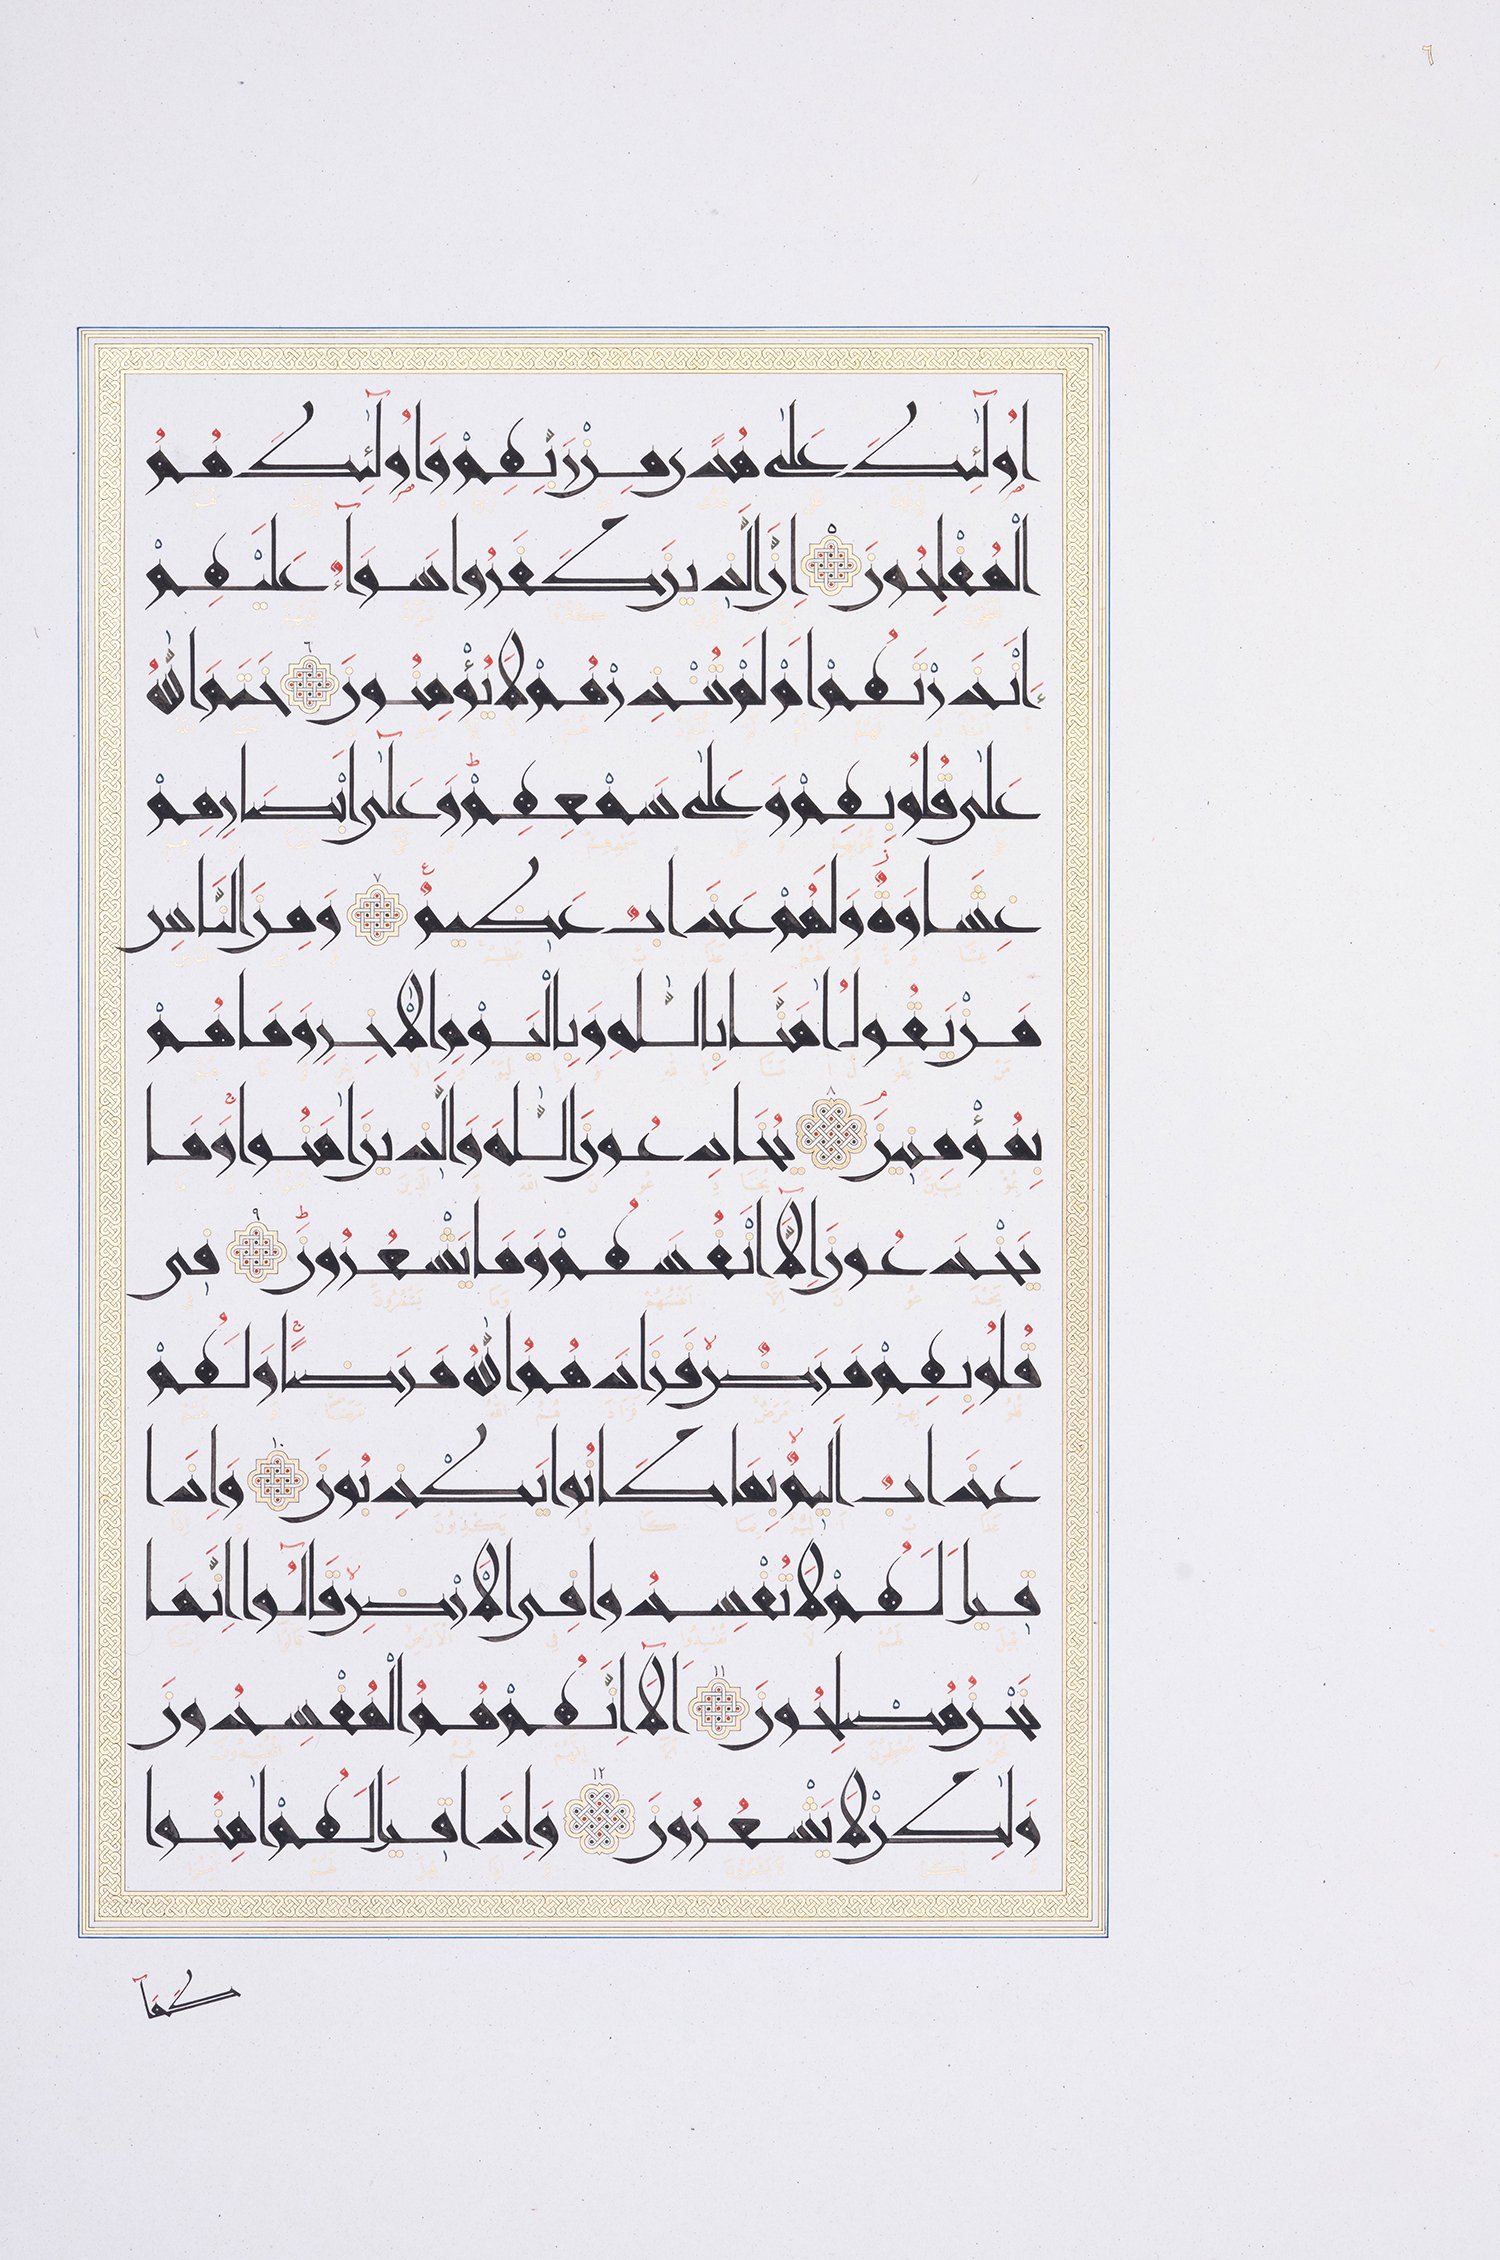 ٦
اُولٰٓئِكَ عَلٰى هُدًى مِنْ رَبِّهِمْ وَاُولٰٓئِكَ هُمُ
الْمُفْلِحُونَ ٥ اِنَّ الَّذِينَ كَفَرُوا سَوَٓاءٌ عَلَيْهِمْ
ءَاَنْذَرْتَهُمْ اَمْ لَمْ تُنْذِرْهُمْ لَا يُؤْمِنُونَ ٦ خَتَمَ اللّٰهُ
عَلٰى قُلُوبِهِمْ وَعَلٰى سَمْعِهِمْ وَعَلٰٓى اَبْصَارِهِمْ
غِشَاوَةٌ وَلَهُمْ عَذَابٌ عَظِيمٌ ٧ وَمِنَ النَّاسِ
مَنْ يَقُولُ اٰمَنَّا بِاللّٰهِ وَبِالْيَوْمِ الْاٰخِرِ وَمَا هُمْ
بِمُؤْمِنِينَ ٨ يُخَادِعُونَ اللّٰهَ وَالَّذِينَ اٰمَنُوا وَمَا
يَخْدَعُونَ اِلَّٓا اَنْفُسَهُمْ وَمَا يَشْعُرُونَ ٩ فِى
قُلُوبِهِمْ مَرَضٌ فَزَادَهُمُ اللّٰهُ مَرَضًا وَلَهُمْ
عَذَابٌ اَلِيمٌ بِمَا كَانُوا يَكْذِبُونَ ١٠ وَاِذَا
قِيلَ لَهُمْ لَا تُفْسِدُوا فِى الْاَرْضِ قَالُٓوا اِنَّمَا
نَحْنُ مُصْلِحُونَ ١١ اَلَٓا اِنَّهُمْ هُمُ الْمُفْسِدُونَ
وَلٰكِنْ لَا يَشْعُرُونَ ١٢ وَاِذَا قِيلَ لَهُمْ اٰمِنُوا
كَمَٓا